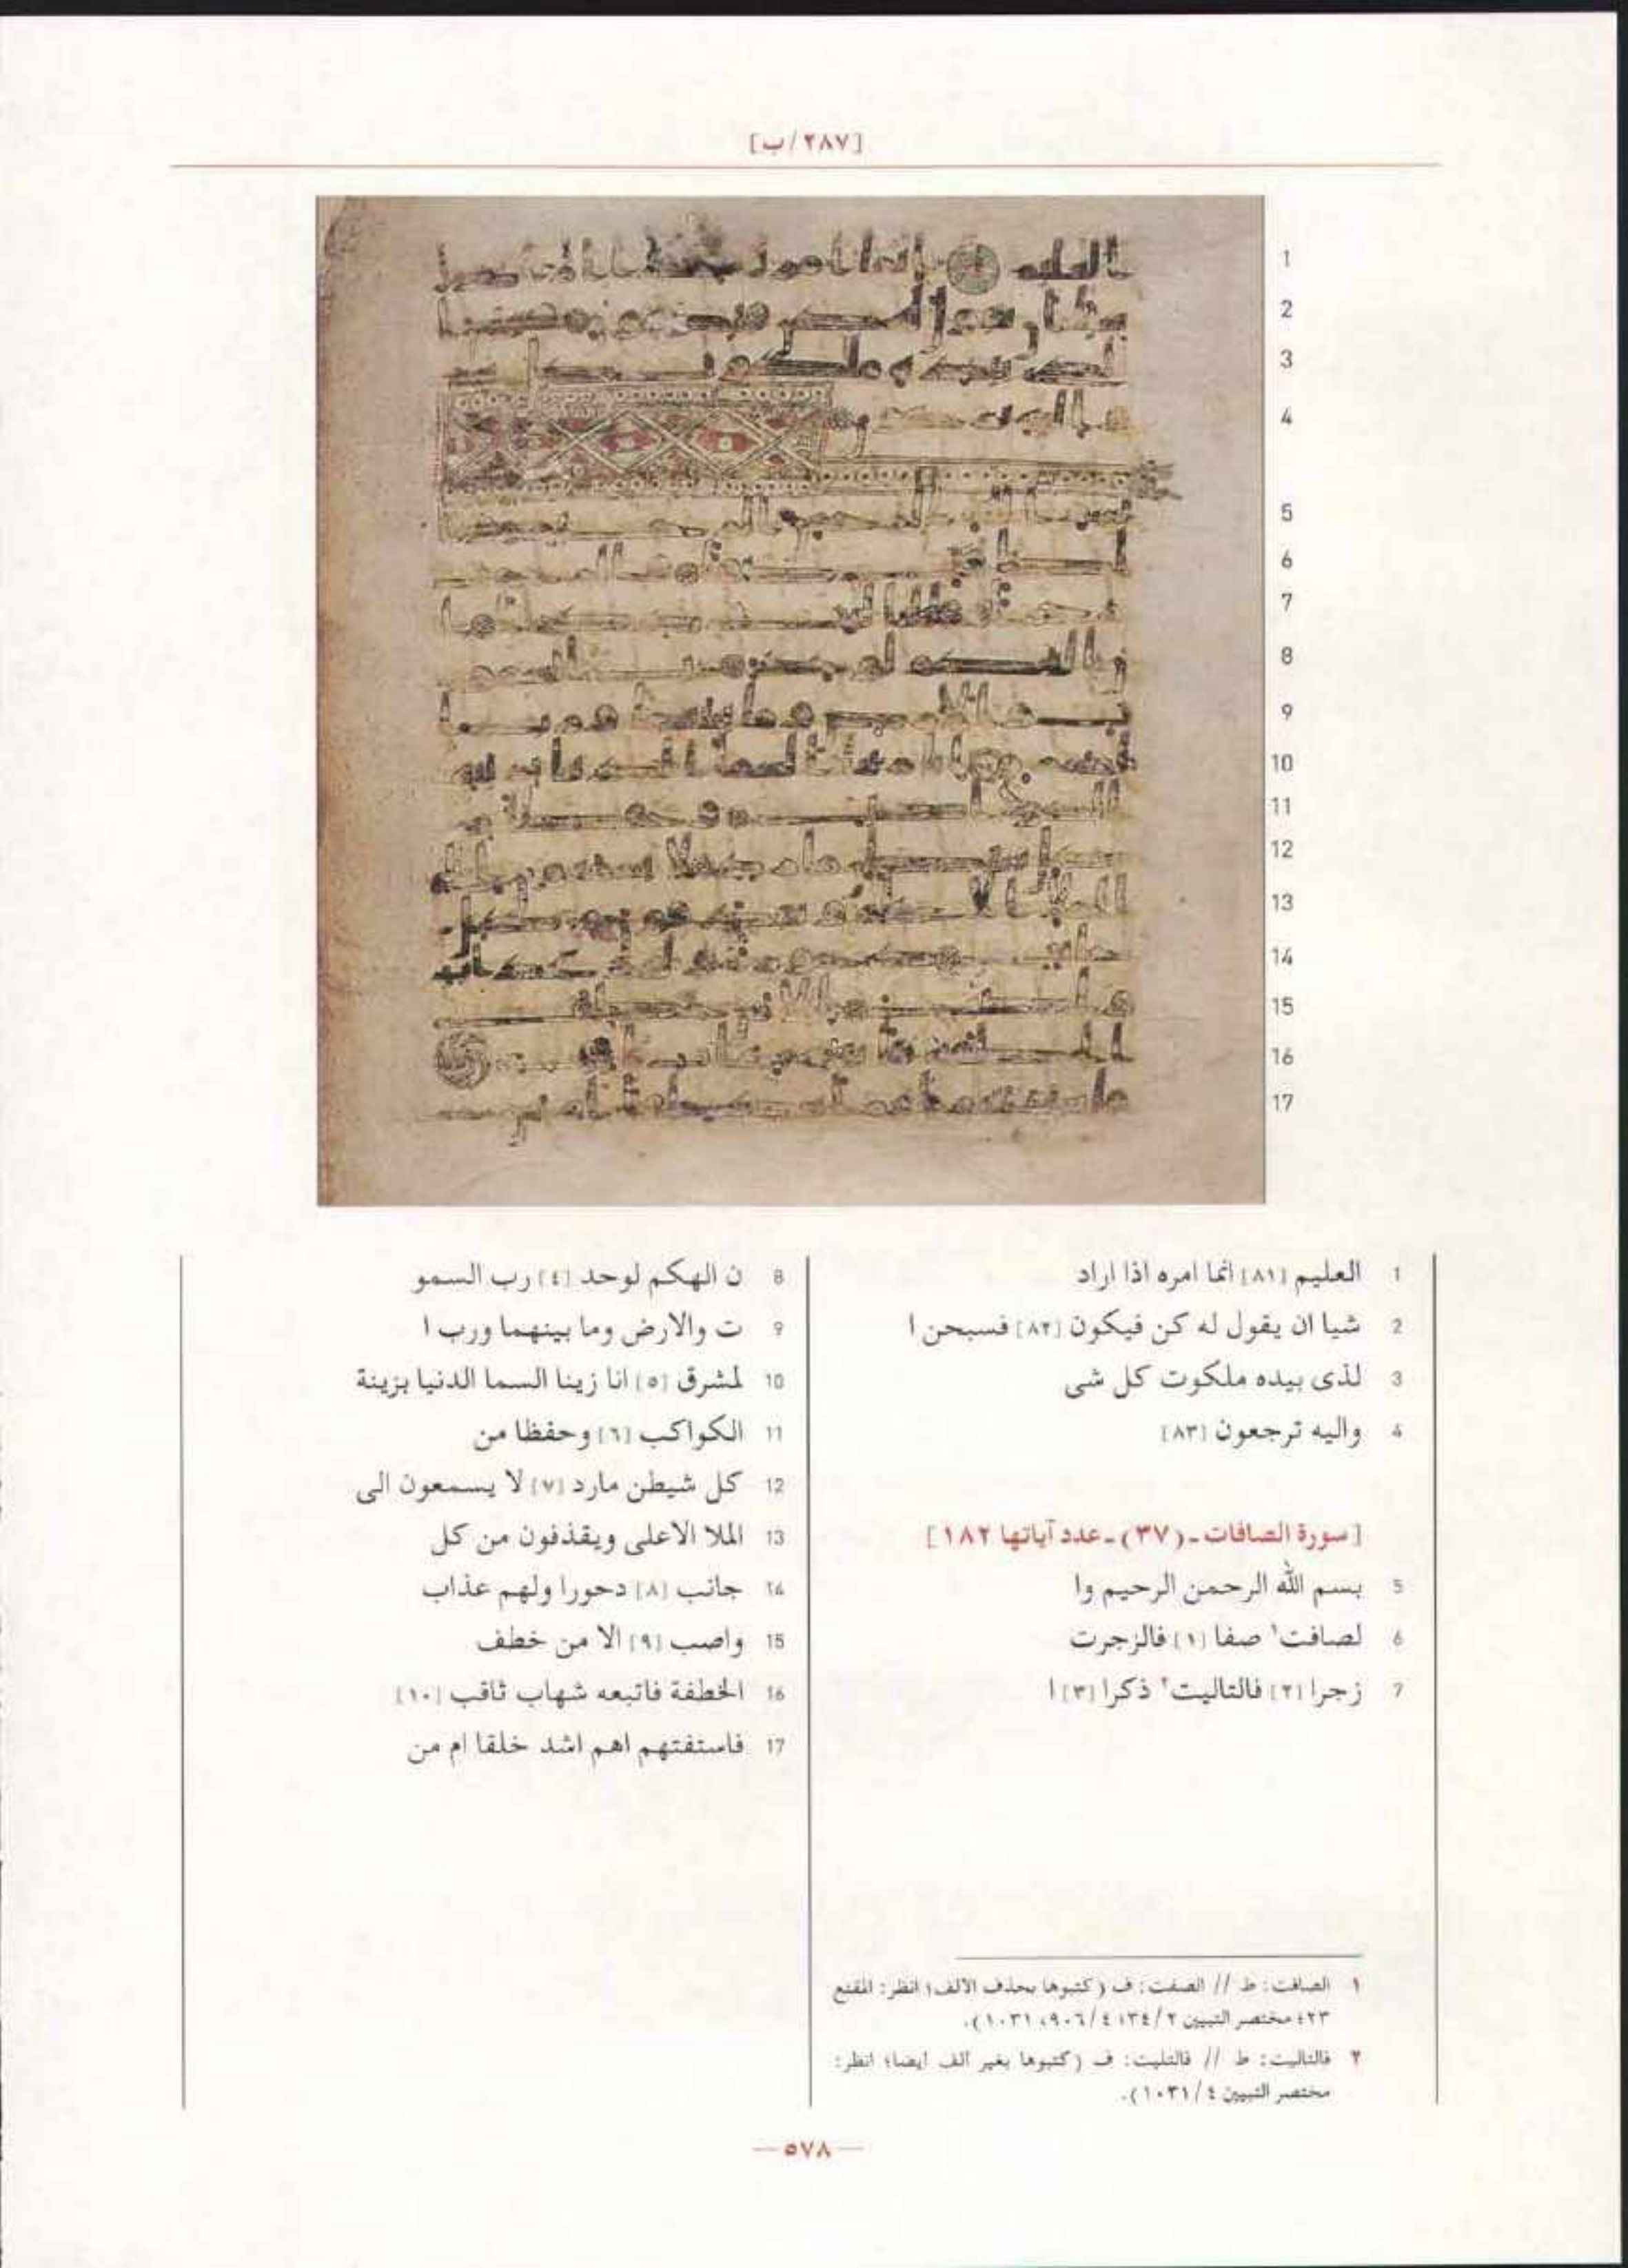 [٢٨٧/ب]
1 العليم [٨١] انما امره اذا اراد
2 شيا ان يقول له كن فيكون [٨٢] فسبحن ا
3 لذى بيده ملكوت كل شى
4 واليه ترجعون [٨٣]
[سورة الصافات ـ (٣٧) ـ عدد آياتها ١٨٢]
5 بسم الله الرحمن الرحيم وا
6 لصافت١ صفا [١] فالزجرت
7 زجرا [٢] فالتاليت٢ ذكرا [٣] ا
8 ن الهكم لوحد [٤] رب السمو
9 ت والارض وما بينهما ورب ا
10 لمشرق [٥] انا زينا السما الدنيا بزينة
11 الكواكب [٦] وحفظا من
12 كل شيطن مارد [٧] لا يسمعون الى
13 الملا الاعلى ويقذفون من كل
14 جانب [٨] دحورا ولهم عذاب
15 واصب [٩] الا من خطف
16 الخطفة فاتبعه شهاب ثاقب [١٠]
17 فاستفتهم اهم اشد خلقا ام من
١ الصافت: ط // الصفت: ف (كتبوها بحذف الالف؛ انظر: المقنع
٢٣؛ مختصر التبيين ٢/ ٣٤؛ ٤/ ٩٠٦، ١٠٣١).
٢ فالتاليت: ط // فالتليت: ف (كتبوها بغير ألف أيضا؛ انظر:
مختصر التبيين ٤/ ١٠٣١).
— ٥٧٨ —